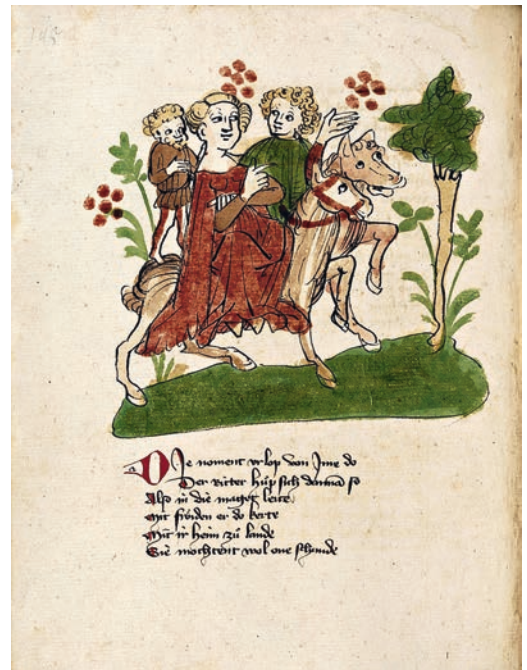 145
DIe noment vrlop von Ime do
Der ritter hůp sich dannā so
Also in die maget lerte
Mit fröiden er do kerte
Mit ir heim zů lande
Sie mochtent wol one schande